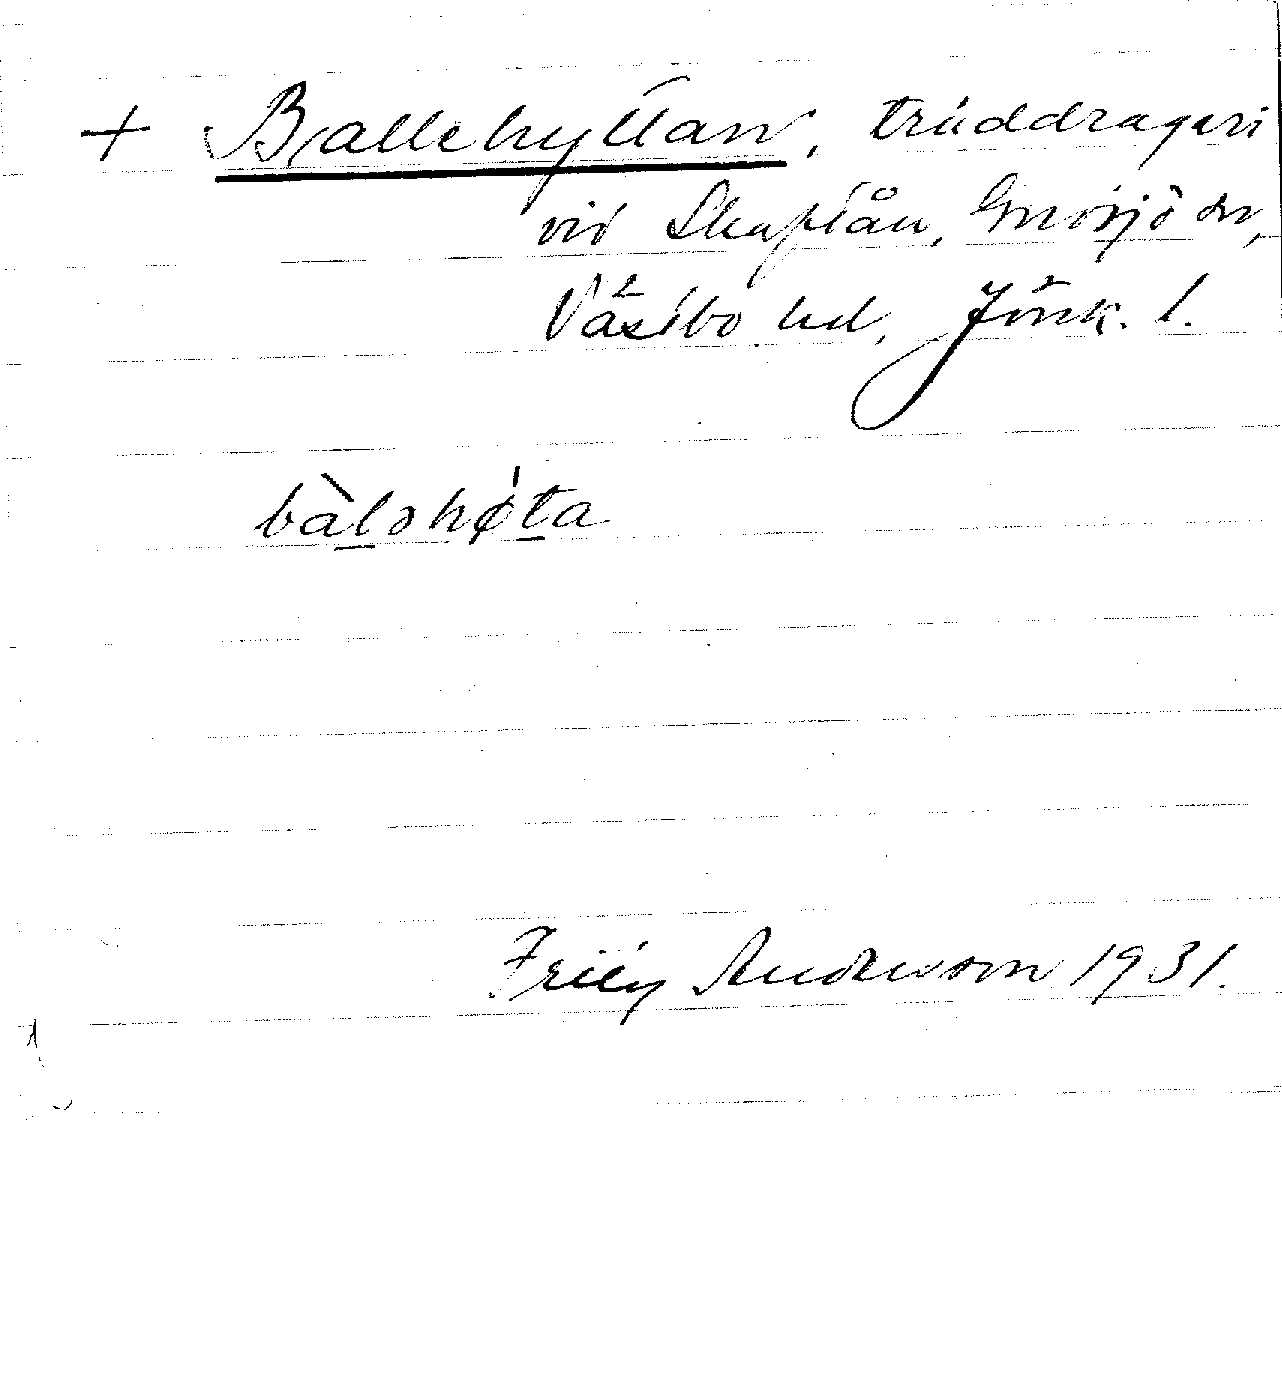 + Ballehyttan, tråddrageri
vid Skaftån, Gnosjö sn,
Västbo hd, Jönk. l.
bàləhǿta
Frity Anderson 1931.